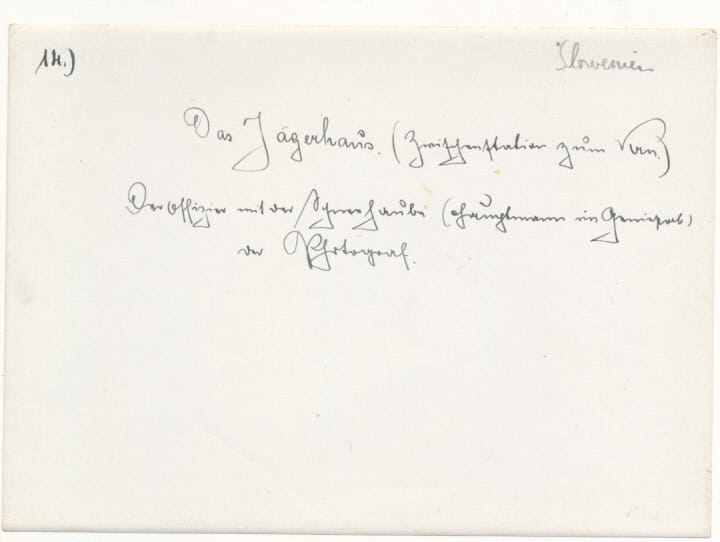 14.)
Slowenien
Das Jägerhaus. (Zwischenstation zum Vrn.)
Der Offizier mit der Schneehaube (Hauptmann im Geniestab)
der Photograf.